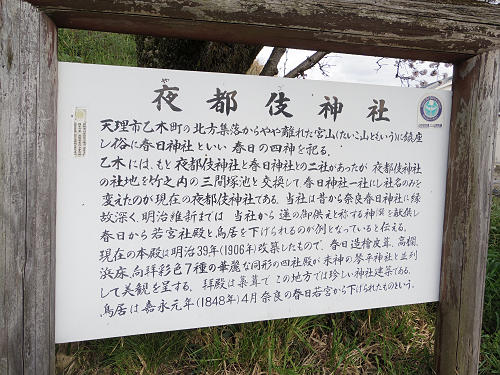 夜都伎神社
や
天理市乙木町の北方集落からやや離れた宮山(たいこ山ともいう)に鎮座
し俗に春日神社といい春日の四神を祀る。
乙木には、もと夜都伎神社と春日神社との二社があったが夜都伎神社
の社地を竹之内の三間塚池と交換して春日神社一社にし社名のみを
変えたのが現在の夜都伎神社である。当社は昔から奈良春日神社に縁
故深く明治維新までは、当社から蓮の御供えと称する神饌を献供し
春日から若宮社殿と鳥居を下げられるのが例となっていると伝える。
現在の本殿は明治39年(1906年)改築したもので、春日造檜皮葺、高欄、
浜床、向拝彩色7種の華麗な同形の四社殿が末神の琴平神社と並列
して美観を呈する。拝殿は藁葺でこの地方では珍しい神社建築である。
鳥居は嘉永元年(1848年)4月奈良の春日若宮から下げられたものという。